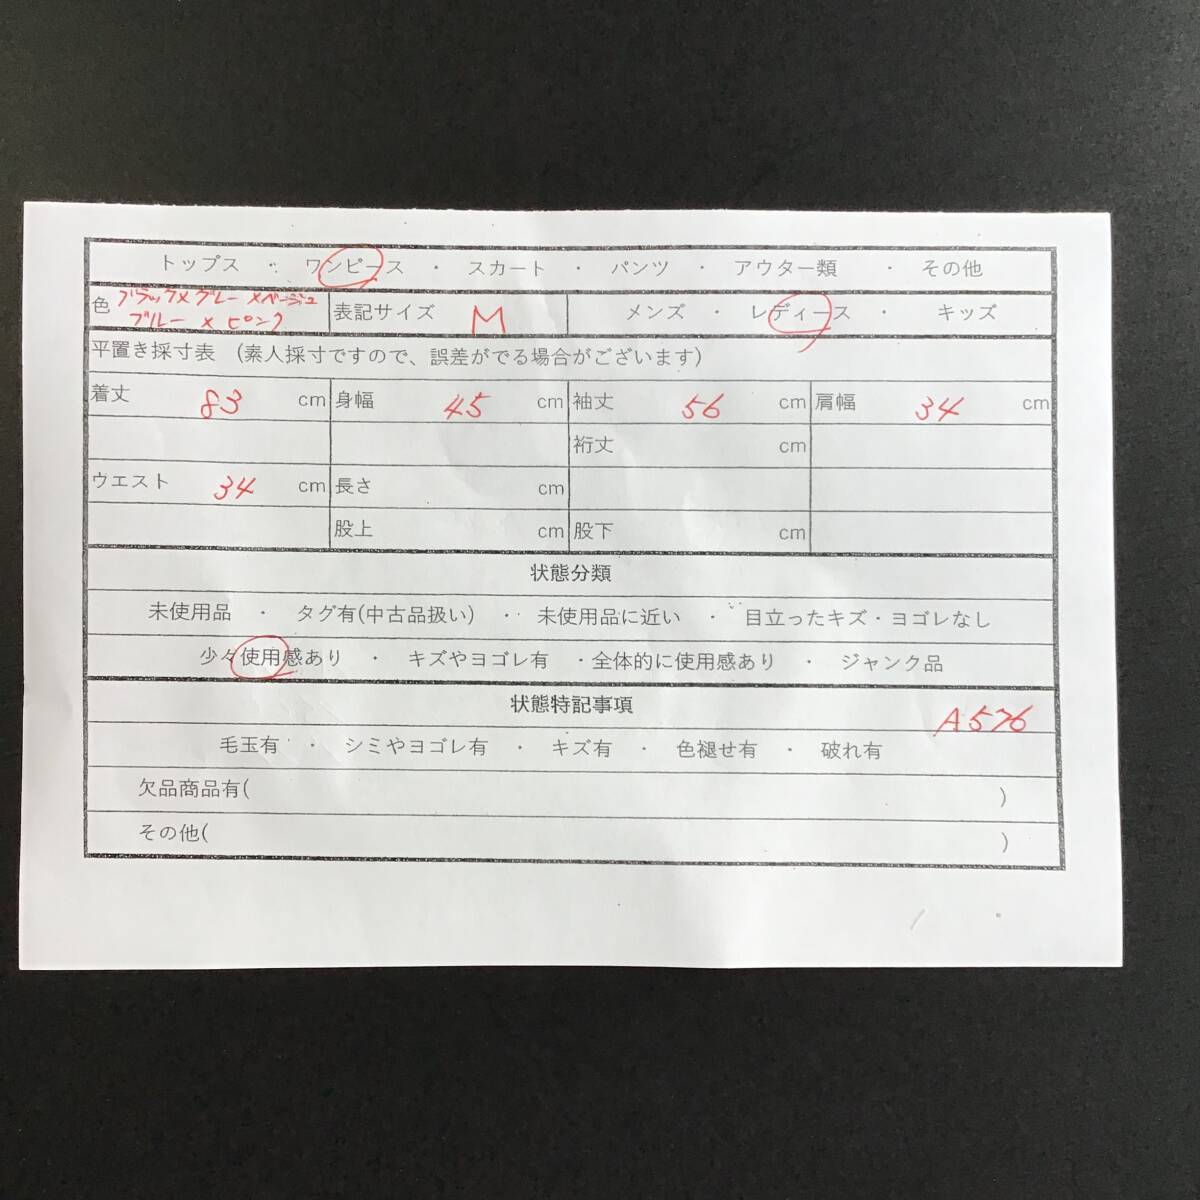 トップス ・ ワンピース ・ スカート ・ パンツ ・ アウター類 ・ その他
色 ブラック×グレー×ベージュ
ブルー×ピンク
表記サイズ M
メンズ ・ レディース ・ キッズ
平置き採寸表 (素人採寸ですので、誤差がでる場合がございます)
着丈 83 cm 身幅 45 cm 袖丈 56 cm 肩幅 34 cm
裄丈 cm
ウエスト 34 cm 長さ cm
股上 cm 股下 cm
状態分類
未使用品 ・ タグ有(中古品扱い) ・ 未使用品に近い ・ 目立ったキズ・ヨゴレなし
少々使用感あり ・ キズやヨゴレ有 ・全体的に使用感あり ・ ジャンク品
状態特記事項 A576
毛玉有 ・ シミやヨゴレ有 ・ キズ有 ・ 色褪せ有 ・ 破れ有
欠品商品有( )
その他( )